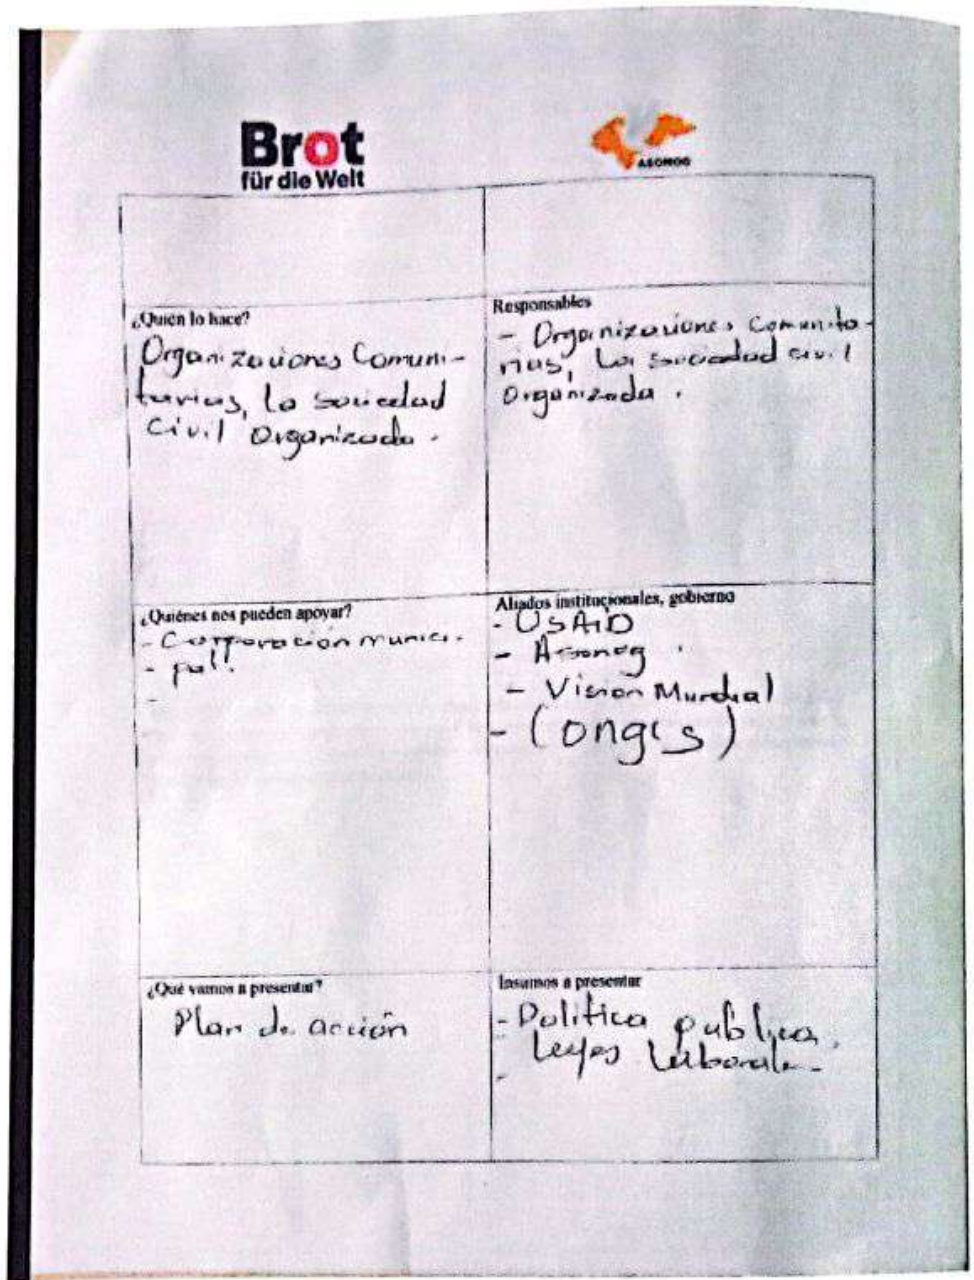 Brot
für die Welt
ASONOG
¿Quién lo hace?
Organizaciones Comuni-
tarias, la sociedad
Civil Organizada.
Responsables
- Organizaciones Comunita-
rias, La sociedad civil
Organizada.
¿Quiénes nos pueden apoyar?
- Corporación munici-
- pal.
-
Aliados institucionales, gobierno
- USAID
- Asonog
- Vision Mundial
- (ongs)
¿Qué vamos a presentar?
Plan de acción
Insumos a presentar
- Politica publica.
Leyes Laborales
-